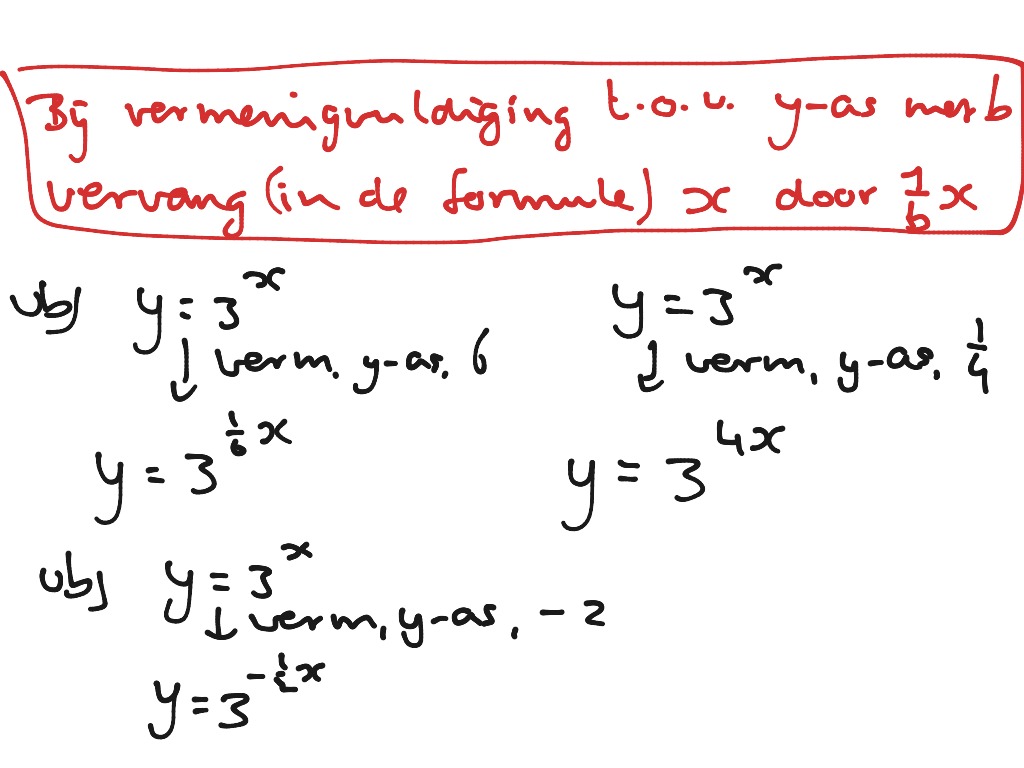 Bij vermenigvuldiging t.o.v. y-as met b
vervang (in de formule) x door 1/b x
vb) y = 3^x
↓ verm, y-as, 6
y = 3^(1/6 x)
y = 3^x
↓ verm, y-as, 1/4
y = 3^(4x)
vb) y = 3^x
↓ verm, y-as, -2
y = 3^(-1/2 x)